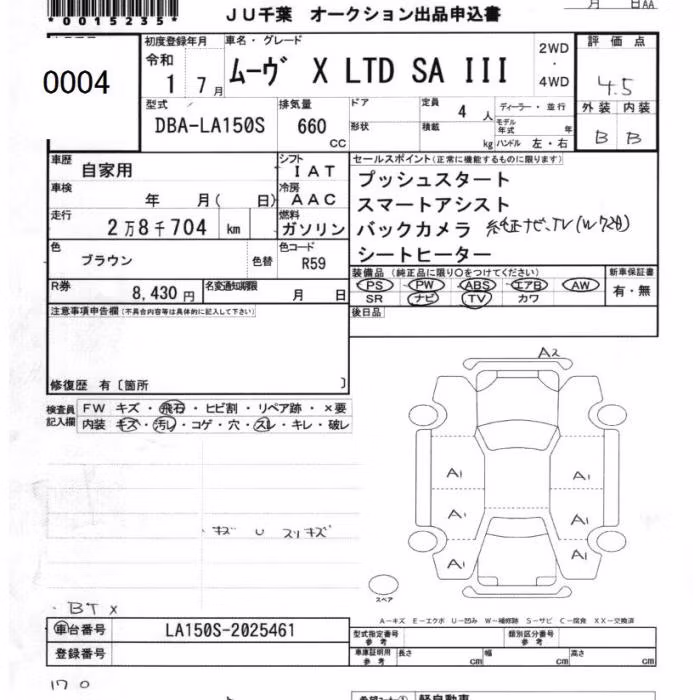 *0015235*
月 日AA
JU千葉 オークション出品申込書
0004
初度登録年月 車名・グレード
令和 1 7月
ムーヴ X LTD SA III
2WD・4WD
評価点
4.5
外装 内装
B B
型式
DBA-LA150S
排気量
660 CC
ドア
形状
定員 4 人
積載 kg
ディーラー・並行
モデル年式 年
ハンドル 左・右
車歴 自家用
シフト IAT
車検 年 月( 日)
冷房 AAC
走行 2万8千704 km
燃料 ガソリン
色 ブラウン 色替
色コード R59
R券 8,430円
名変通知期限 月 日
セールスポイント(正常に機能するものに限ります)
プッシュスタート
スマートアシスト
バックカメラ 純正ナビ、TV(W72D)
シートヒーター
装備品(純正品に限り○をつけてください)
PS PW ABS エアB AW
SR ナビ TV カワ
新車保証書
有・無
後日品
注意事項申告欄(不具合内容等は具体的に記入して下さい)
修復歴 有〔箇所 〕
検査員記入欄
FW キズ・飛石・ヒビ割・リペア跡・×要
内装 キズ・汚れ・コゲ・穴・スレ・キレ・破レ
A2
A1 A1
A1 A1
A1 A1
スペア
・キズ U スリキズ
・BT×
A-キズ E-エクボ U-凹み W-補修跡 S-サビ C-腐食 XX-交換済
車台番号 LA150S-2025461
登録番号
型式指定番号 参考
類別区分番号 参考
車庫証明用 参考 長さ cm 幅 cm 高さ cm
170
軽自動車